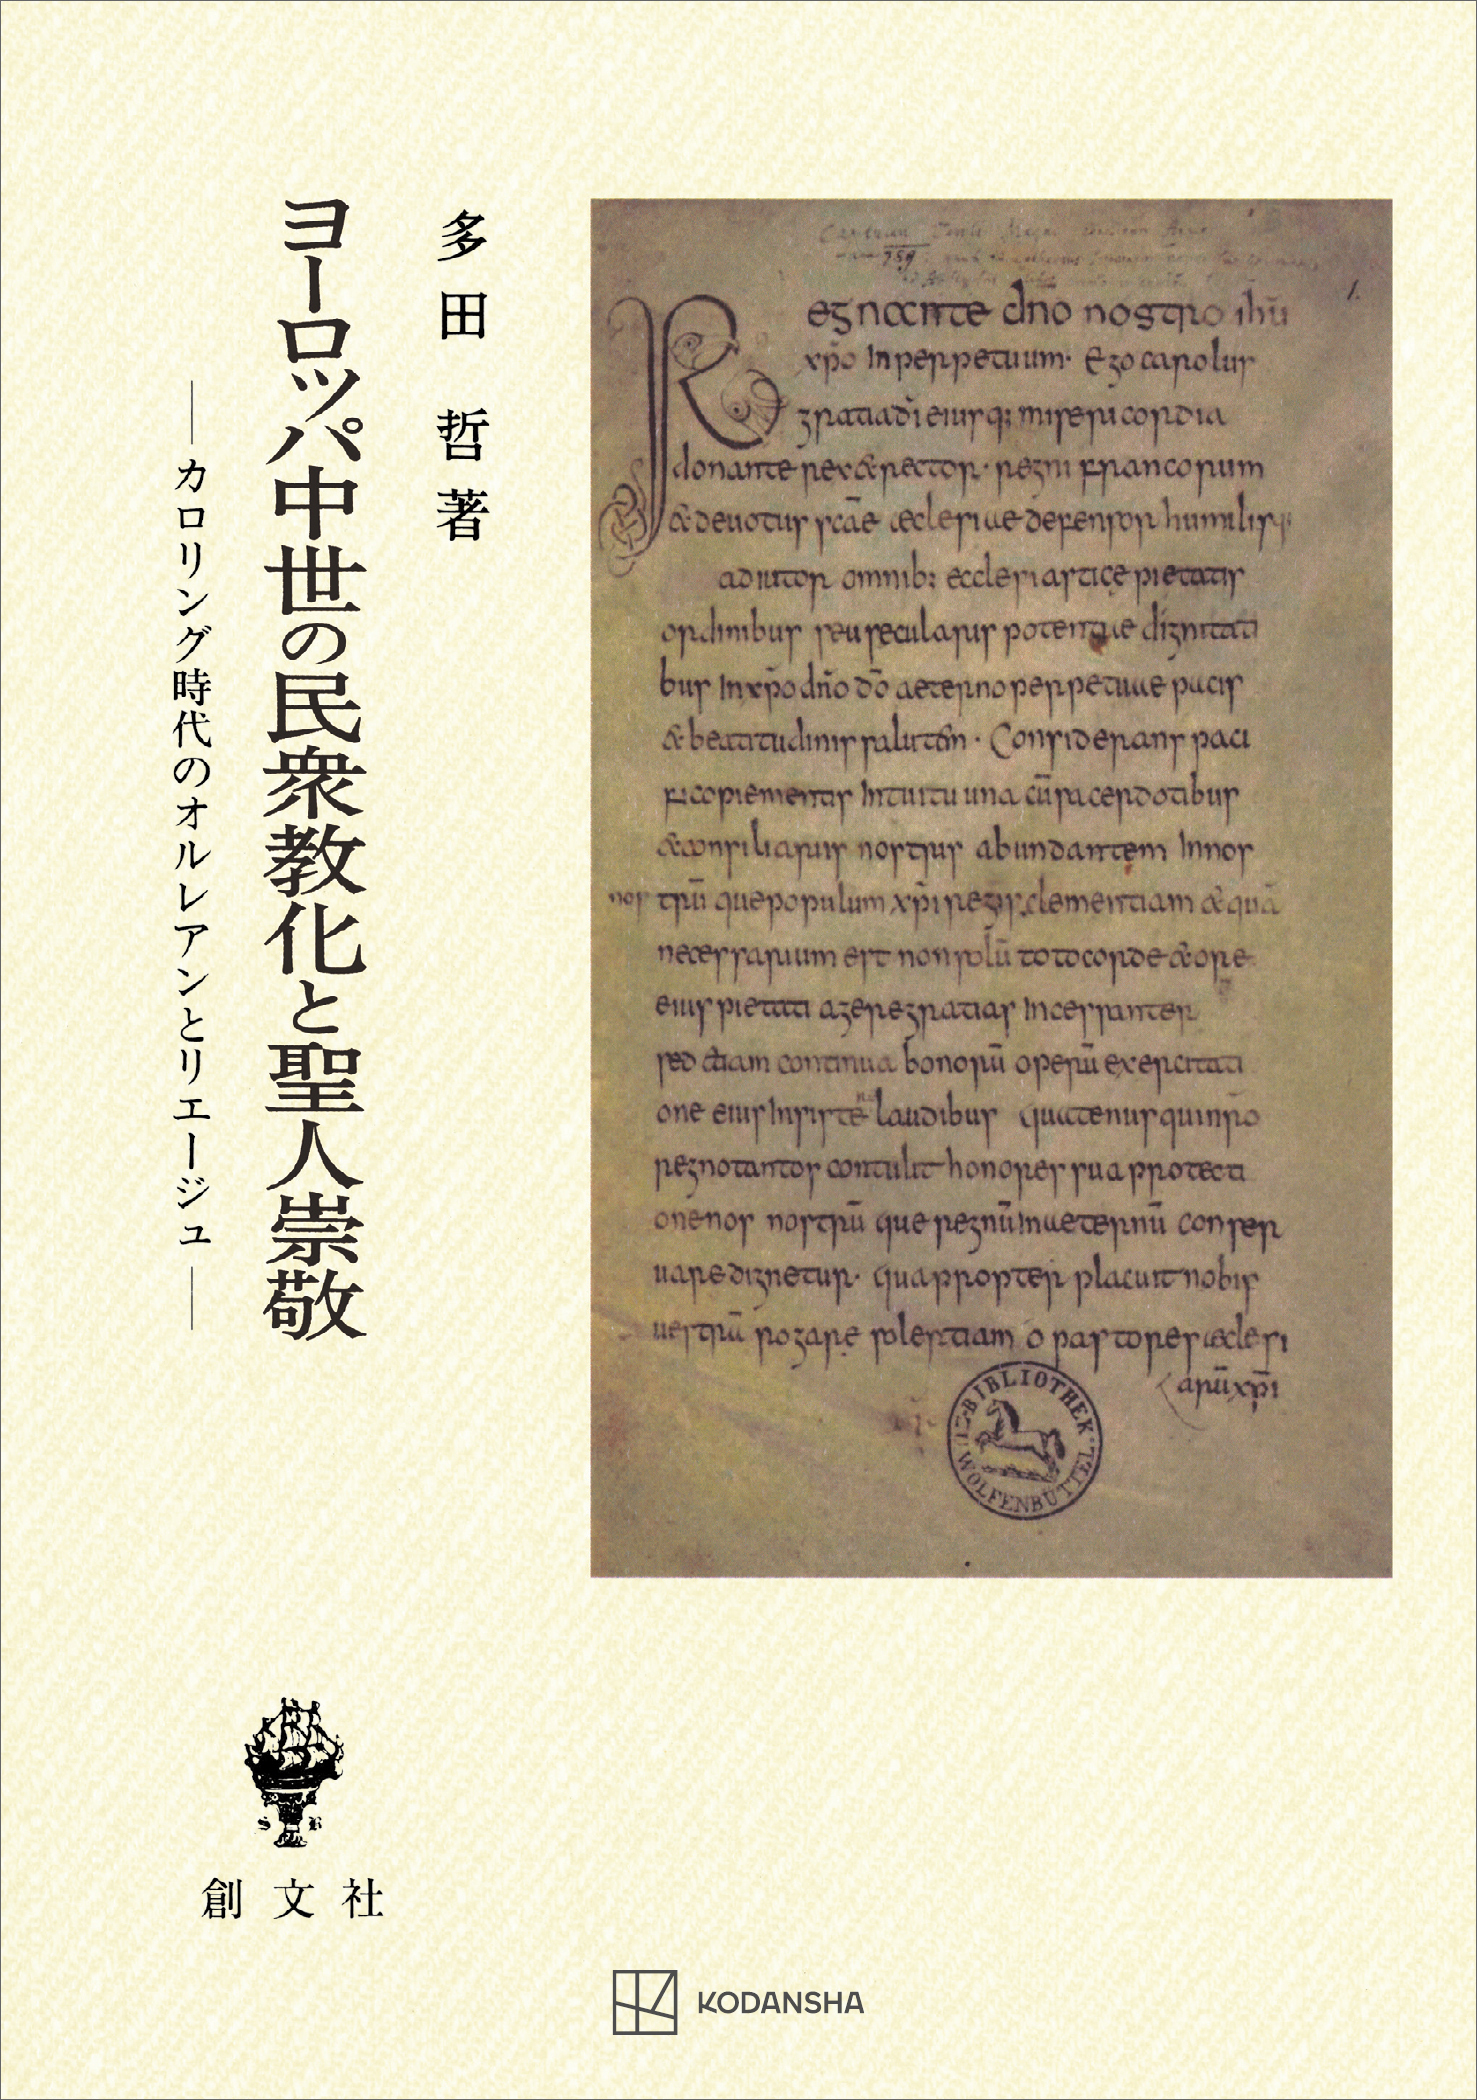 多田 哲 著
ヨーロッパ中世の民衆教化と聖人崇敬
―カロリング時代のオルレアンとリエージュ―
1.
Regnante dño nostro ihū
xp̄o Inperpetuum· Ego carolus
gratiadī eiusq; misericordia
donante rex & rector· regni francorum
& deuotus scāe aeclesiae defensor humilis
adiutor omnib: ecclesiasticę pietatis
ordinibus seu secularis potentiae dignitati
bus Inxp̄o dño dō aeterno perpetuae pacis
& beatitudinis salutem· Considerans paci
ficopiementis Intuitu una cū sacerdotibus
& consiliariis nostris abundantem Innos
nostrū que populum xp̄i regis clementiam & quā
necessarium est non solū toto corde & ore
eius pietati agere gratias Incessanter
sed etiam continua bonorū operū exercitati
one eius Insistere laudibus quatenus qui nr̄o
regno tantos contulit honores sua protecti
one nos nostrū que regnū Inaeternū conser
uare dignetur· quapropter placuit nobis
uestrā rogare solertiam o pastores aeclesi
arū xp̄i
BIBLIOTHEK
WOLFENBÜTTEL
S R
創文社
KODANSHA